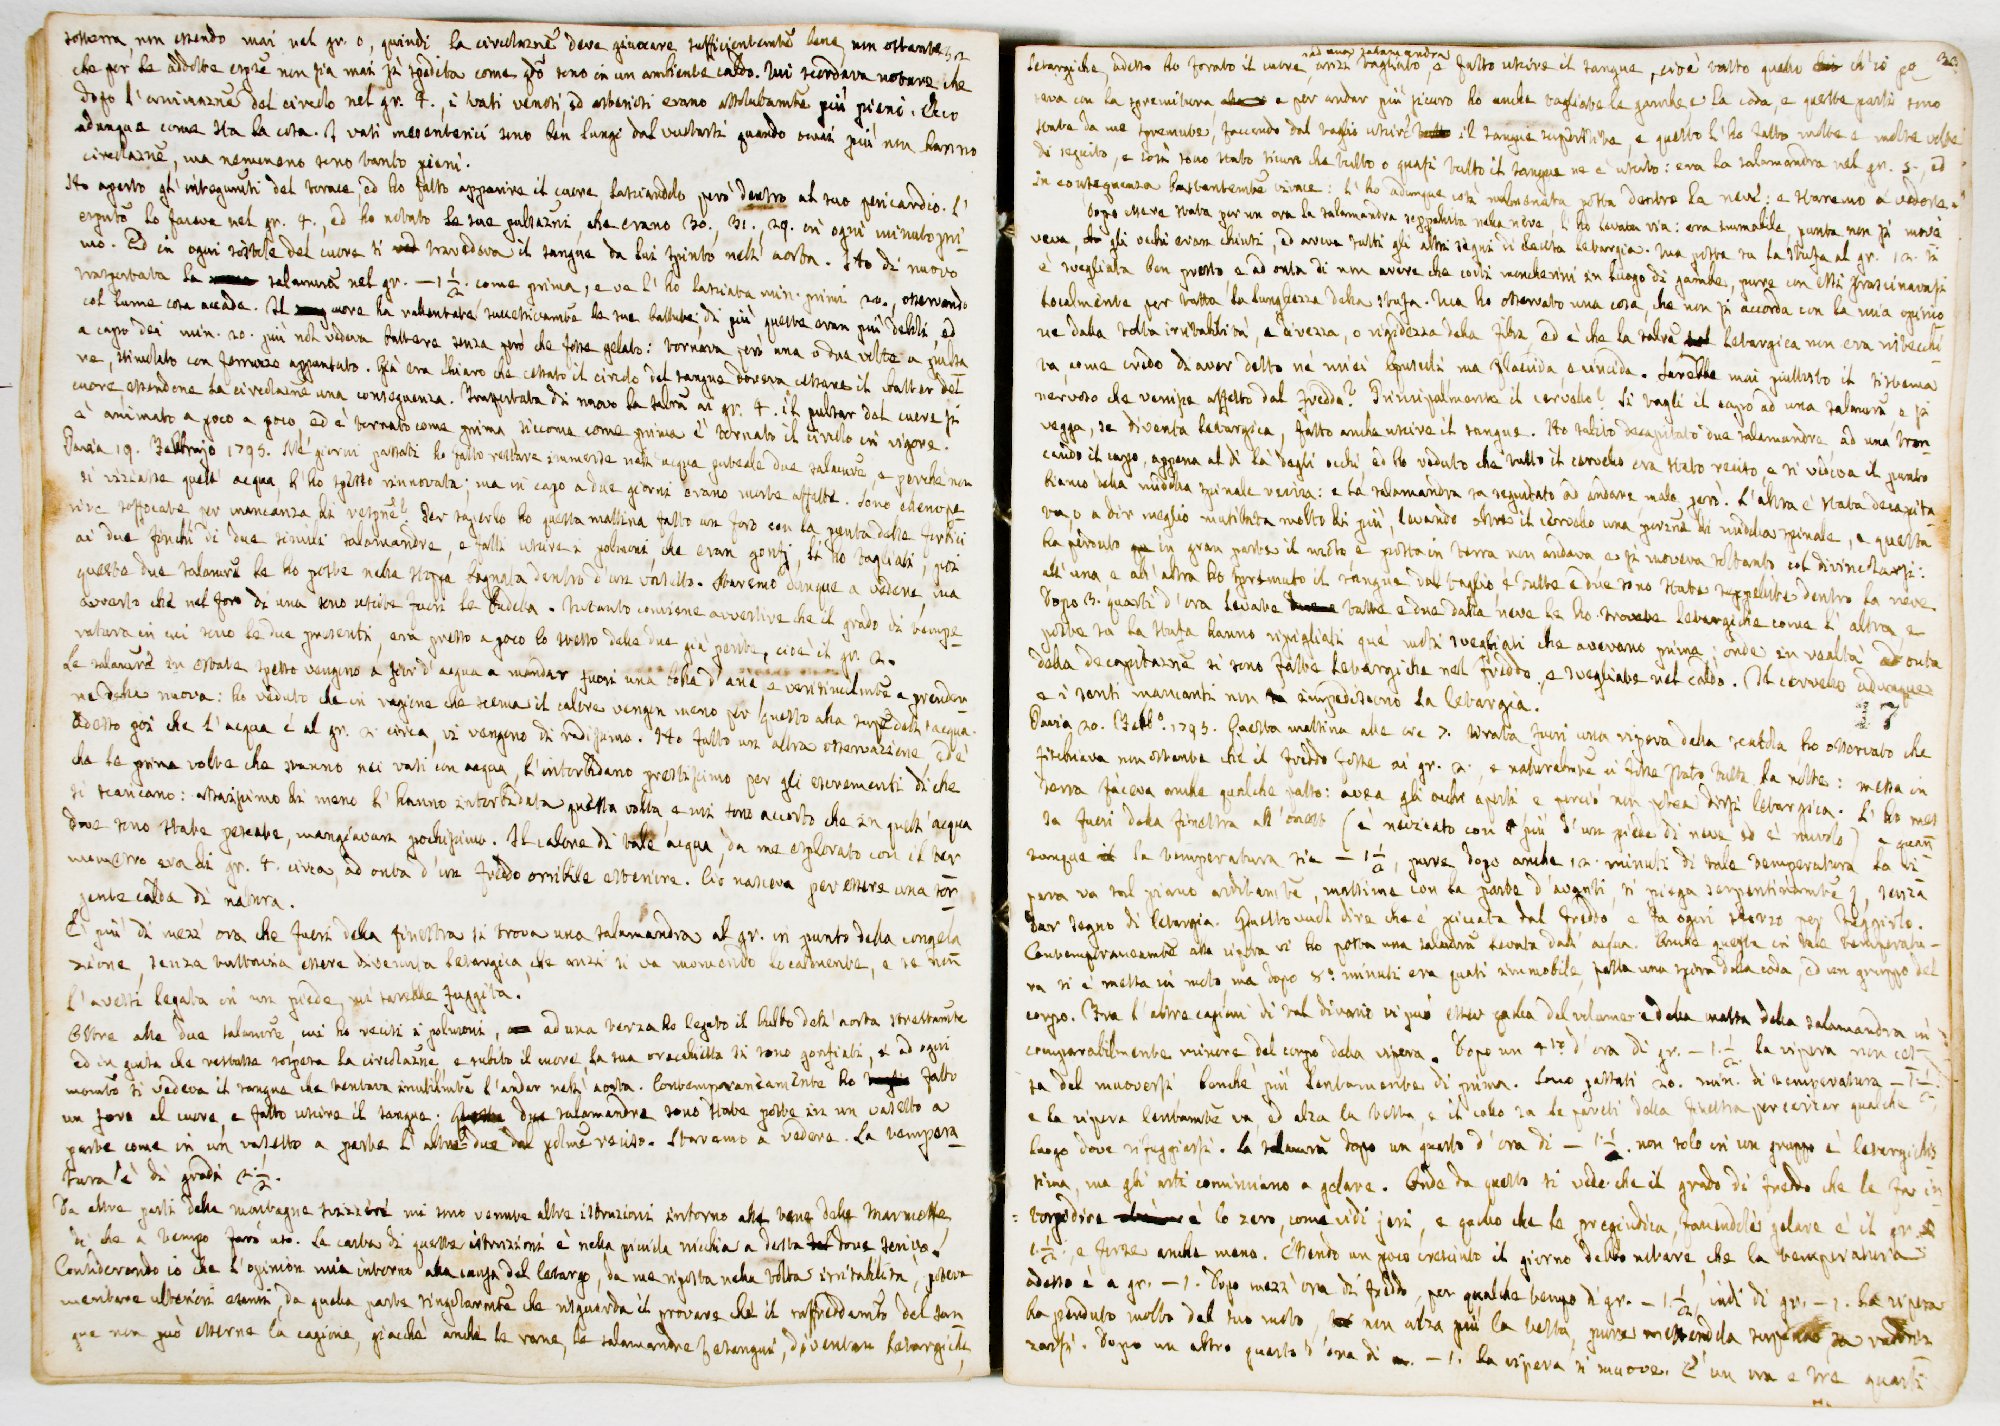 sotterra, non essendo mai nel gr. 0, quindi la circolazne deve giuocare sufficientemte bene, non ostante 32
che per le addotte espze non sia mai sì spedita come qdo sono in un ambiente caldo. Mi scordava notare che
dopo l'animazne del circolo nel gr. 4., i vasi venosi ed arteriosi erano assolutamte più pieni. Ecco
adunque come sta la cosa. I vasi mesenterici sono ben lungi dal vuotarsi quando quasi più non hanno
circolazne, ma nemmeno sono tanto pieni.
Ho aperto gl'integumti del torace, ed ho fatto apparire il cuore, lasciandolo però dentro al suo pericardio. L'
esputo lo faceva nel gr. 4., ed ho notato le sue pulsazni, che erano 30., 31., 29. in ogni minuto pri
mo. Ed in ogni sistole del cuore si travedeva il sangue da lui spinto nell'aorta. Ho di nuovo
trasportata la salamra nel gr. — 1 1/2. come prima, e ve l'ho lasciata min. primi 20., osservando
col lume cosa accade. Il cuore ha rallentate successivamte le sue battute; di più queste eran più deboli, ed
a capo dei min. 20. più nol vedeva battere senza però che fosse gelato: tornava però una o due volte a pulsa
re, stimolato con ferruzzo appuntato. Già era chiaro che cessato il circolo del sangue doveva cessare il batter del
cuore, essendone la circolazne una conseguenza. Trasportata di nuovo la salamra ai gr. 4. il pulsar del cuore si
è animato a poco a poco, ed è tornato come prima siccome come prima è tornato il circolo in vigore.
Pavia 19. Febbrajo 1795. Nei giorni passati ho fatto restare immerse nell'acqua puteale due salamre, e perché non
si viziasse quell'acqua, l'ho spesso rinnovata; ma in capo a due giorni erano morte affatto. Sono elleno pe
rite soffocate per mancanza di respne? Per saperlo ho questa mattina fatto un foro con la punta delle forbici
ai due fianchi di due simili salamandre, e fatti uscire i polmoni che eran gonfj, li ho tagliati, poi
queste due salamre le ho poste nella stoppa bagnata dentro d'un vasetto. Staremo dunque a vedere, ma
avverto che nel foro di una sono uscite fuori le budella. Intanto conviene avvertire che il grado di tempe
ratura in cui sono le due presenti, era presso a poco lo stesso delle due già perite, cioè il gr. 2.
Le salamre in estate spesso vengono a fior d'acqua a mandar fuori una bolla d'aria, e ventimilimte a prender
ne della nuova: ho veduto che in ragione che scema il calore vengon meno per questo alla superfe dell'acqua.
Adesso poi che l'acqua è al gr. 2. circa, vi vengono di radissimo. Ho fatto un'altra osservazione, ed è
che le prime volte che stanno nei vasi con acqua, l'intorbidano prestissimo per gli escrementi di che
si scaricano: assaissimo di meno l'hanno intorbidata questa volta, e mi sono accorto che in quell'acqua
dove sono state pescate, mangiavano pochissimo. Il calore di tale acqua, da me esplorato con il ter
mometro era di gr. 4. circa, ad onta d'un freddo orribile esteriore. Ciò nasceva per essere una sor
gente calda di natura.
È più di mezz'ora che fuori della finestra si trova una salamandra al gr. in punto della congela
zione, senza tuttavia essere divenuta letargica, che anzi si va movendo localmente, e se non
l'avessi legata in un piede, mi sarebbe fuggita.
Oltre alle due salamre, cui ho recisi i polmoni, ad una terza ho legato il bulbo dell'aorta strettamte
ed in guisa che restasse sospesa la circolazne, e subito il cuore, la sua orecchietta si sono gonfiati, e ad ogni
momto si vedeva il sangue che tentava inutilmte l'andar nell'aorta. Contemporaneamente ho fatto
un foro al cuore, e fatto uscire il sangue. due salamandre sono state poste in un vasetto a
parte come in un vasetto a parte l'altre due dal polmne reciso. Staremo a vedere. La tempera
tura è di gradi 2 1/2.
Da altre parti delle montagne svizzere mi sono venute altre istruzioni intorno alle tane delle Marmotte,
di che a tempo farò uso. La carta di queste istruzioni è nella piccola nicchia a destra dove scrivo.
Considerando io che l'opinion mia intorno alla causa del letargo, da me riposta nella tolta irritabilità, poteva
meritare ulteriori esami, da quella parte singolarmte che risguarda il provare che il raffreddamto del san
gue non può esserne la cagione, giacché anche le rane, le salamandre esangui, diventan letargiche,
33
ad una salamandra
letargiche, adesso ho forato il cuore, anzi tagliato, e fatto uscire il sangue, cioè tutto quello ch'io po
teva con la spremitura e per andar più sicuro ho anche tagliate le gambe e la coda, e queste parti sono
state da me spremute, facendo dal taglio uscire il sangue superstite, e questo l'ho fatto molte e molte volte
di seguito, e così sono stato sicuro che tutto o quasi tutto il sangue ne è uscito: era la salamandra nel gr. 5., ed
in conseguenza bastantemte vivace: l'ho adunque così malmenata posta dentro la neve: e staremo a vedere.
Dopo essere stata per un'ora la salamandra seppellita nella neve, l'ho levata via: era immobile, punta non si move
veva, gli occhi eran chiusi, ed aveva tutti gli altri segni di decisa letargia. Ma posta su la stufa al gr. 12. si
è svegliata ben presto, e ad onta di non avere che corti moncherini in luogo di gambe, pure con essi strascinavasi
localmente per tutta la lunghezza della stufa. Ma ho osservato una cosa, che non si accorda con la mia opinio
ne della tolta irritabilità, e durezza, o rigidezza della fibra, ed è che la salamra letargica non era istecchi
ta, come credo di aver detto ne' miei Opuscoli ma flaccida e vincida. Sarebbe mai piuttosto il sistema
nervoso che venisse affetto dal freddo? Principalmente il cervello? Si tagli il capo ad una salamra, e si
vegga, se diventa letargica, fatto anche uscire il sangue. Ho subito decapitato due salamandre ad una tron
cando il capo, appena al di là degli occhi ed ho veduto che tutto il cervello era stato reciso, e si vedeva il punto
bianco della midolla spinale recisa: e la salamandra ha seguitato ad andare, male però. L'altra è stata decapita
ta, o a dir meglio mutilata molto di più, levando oltre il cervello una porzne di midolla spinale, e questa
ha perduto in gran parte il moto e posta in terra non andava e si moveva soltanto col divincolarsi:
all'una e all'altra ho spremuto il sangue dal taglio e tutte e due sono state seppellite dentro la neve.
Dopo 3. quarti d'ora levate tutte e due dalla neve le ho trovate letargiche come l'altra, e
poste su la stufa hanno ripigliati que' moti svegliati che avevano prima: onde in realtà ad onta
della decapitazne si sono fatte letargiche nel freddo, e svegliate nel caldo. Il cervello adunque
e i sensi mancanti non impediscono la letargia.
17
Pavia 20. Febbo. 1795. Questa mattina alle ore 7. tirata fuori una vipera della scatola ho osservato che
fischiava non ostante che il freddo fosse ai gr. 2., e naturalmte ci fosse stato tutta la notte: messa in
terra faceva anche qualche passo: avea gli occhi aperti e perciò non potea dirsi letargica. L'ho mes
sa fuori della finestra all'onest (è nevicato con più d'un piede di neve ed è nuvolo) e quan
tunque la temperatura sia — 1 1/2, pure dopo anche 12. minuti di tale temperatura la vi
pera va sul piano arditamte, massime con la parte d'avanti, si piega serpentinamte, senza
dar segno di letargia. Questo vuol dire che è piccata dal freddo e fa ogni sforzo per fuggirlo.
Contemporaneamte alla vipera vi ho posta una salamra levata dall'acqua. Anche questa in tale temperatu-
ra si è messa in moto ma dopo 5. minuti era quasi immobile, fatta una spira della coda, ed un gruppo del
corpo. Fra l'altre cagioni di tal divario vi può esser quella del volume e della massa della salamandra in
comparabilmente minore del corpo della vipera. Dopo un 4to d'ora di gr. — 1. 1/2 la vipera non ces
sa del muoversi benché più lentamente di prima. Sono passati 20. min. di temperatura — 1 1/2.
e la vipera lentamte va, ed alza la testa, e il collo su le pareti della finestra per cercar qualche
luogo dove rifuggiarsi. La salamra dopo un quarto d'ora di — 1 1/2. non solo in un gruppo è letargichis
sima, ma gli arti cominciano a gelare. Onde da questo si vede che il grado di freddo che le fa in
torpidire è lo zero, come vidi jeri, e quello che le pregiudica, facendole gelare è il gr.
1 1/2, e forse anche meno. Essendo un poco cresciuto il giorno debbo notare, che la temperatura
adesso è a gr. — 1. Dopo mezz'ora di freddo, per qualche tempo di gr. — 1. 1/2, indi di gr. — 1. la vipera
ha perduto molto del suo moto, non alza più la testa, pure mettendola supina sa raddriz
zarsi. Dopo un altro quarto d'ora di — 1. la vipera si muove. È un'ora e tre quarti